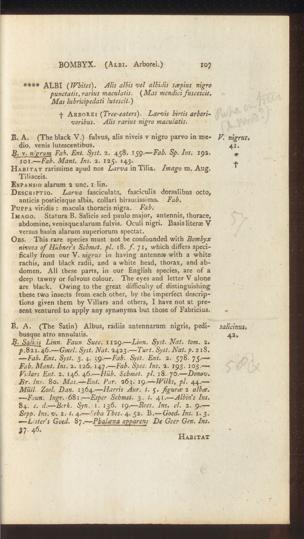 BOMBYX. (ALBI. Arborei.) 107
**** ALBI (Whites). Alis albis vel albidis sæpius nigro
punctatis, rarius maculatis. (Mas mendici fuscescit.
Mas lubricipedati lutescit.)
† ARBOREI (Tree-eaters). Larvis hirtis arbori-
voribus. Alis rarius nigro maculatis.
B. A. (The black V.) fulvus, alis niveis v nigro parvo in me-
dio, venis lutescentibus.
V. nigrum.
41.
*
†
B. v. nigrum Fab. Ent. Syst. 2. 458. 159.—Fab. Sp. Ins. 192.
101.—Fab. Mant. Ins. 2. 125. 143.
HABITAT rarissime apud nos Larva in Tilia. Imago m. Aug.
Tiliaceis.
EXPANSIO alarum 2 unc. 1 lin.
DESCRIPTIO. Larva fasciculata, fasciculis dorsalibus octo,
anticis posticisque albis, collari hirsutissimo. Fab.
PUPPA viridis: macula thoracis nigra. Fab.
IMAGO. Statura B. Salicis sed paulo major, antennis, thorace,
abdomine, venisque alarum fulvis. Oculi nigri. Basis literæ V
versus basin alarum superiorum spectat.
OBS. This rare species must not be confounded with Bombyx
nivosa of Hübner's Schmet. pl. 18. f. 71, which differs speci-
fically from our V. nigrum in having antennæ with a white
rachis, and black radii, and a white head, thorax, and ab-
domen. All these parts, in our English species, are of a
deep tawny or fulvous colour. The eyes and letter V alone
are black. Owing to the great difficulty of distinguishing
these two insects from each other, by the imperfect descrip-
tions given them by Villars and others, I have not at pre-
sent ventured to apply any synonyma but those of Fabricius.
57
B. A. (The Satin) Albus, radiis antennarum nigris, pedi-
busque atro annulatis.
salicinus.
42.
B. Salicis Linn. Faun Suec. 1129.—Lion. Syst. Nat. tom. 2.
p.821.46.—Gmel. Syst. Nat. 2423.—Turt. Syst. Nat. p 218.
—Fab. Ent. Syst. 3. 4. 59.—Fab. Syst. Ent. 2. 578. 75.—
Fab. Mant. Ins. 2. 126. 147.—Fab. Spec. Ins. 2. 193. 105.—
Villars Ent. 2. 146. 46.—Hüb. Schmet. pl. 18. 70.—Donov.
Br. Ins. 80. Mas.—Ent. Par. 263. 19.—Wilks, pl. 44.—
Müll. Zool. Dan. 1364.—Harris Aur. t. 5. figuræ 2 albæ.
—Faun. Ingr. 681.—Esper Schmet. 3. t. 41.—Albin's Ins.
84. c. d.—Berk. Syn. 1. 136. 19.—Rees. Ins. cl. 2. 9.—
Sepp. Ins. v. 2. t. 4.—Seba Thes. 4. 52. B.—Goed. Ins. 1. 3.
—Lister's Goed. 87.—Phalæna apparens De Geer Gen. Ins.
37. 46.
HABITAT